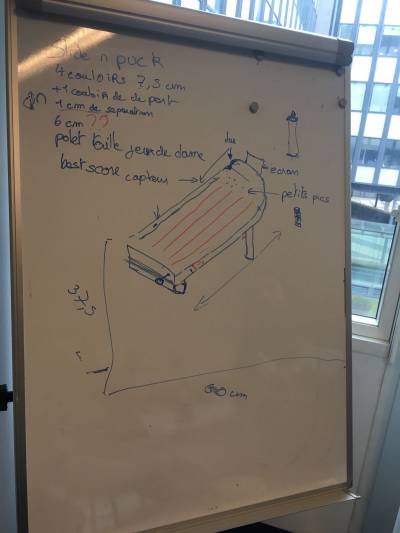 Slide n puck
4 couloirs 7,5 cm
+ 1 couloir de depart
1 cm de separation
6 cm ??
palet taille jeux de dame
best score capteur
ecran
petits pics
37,5
60 cm